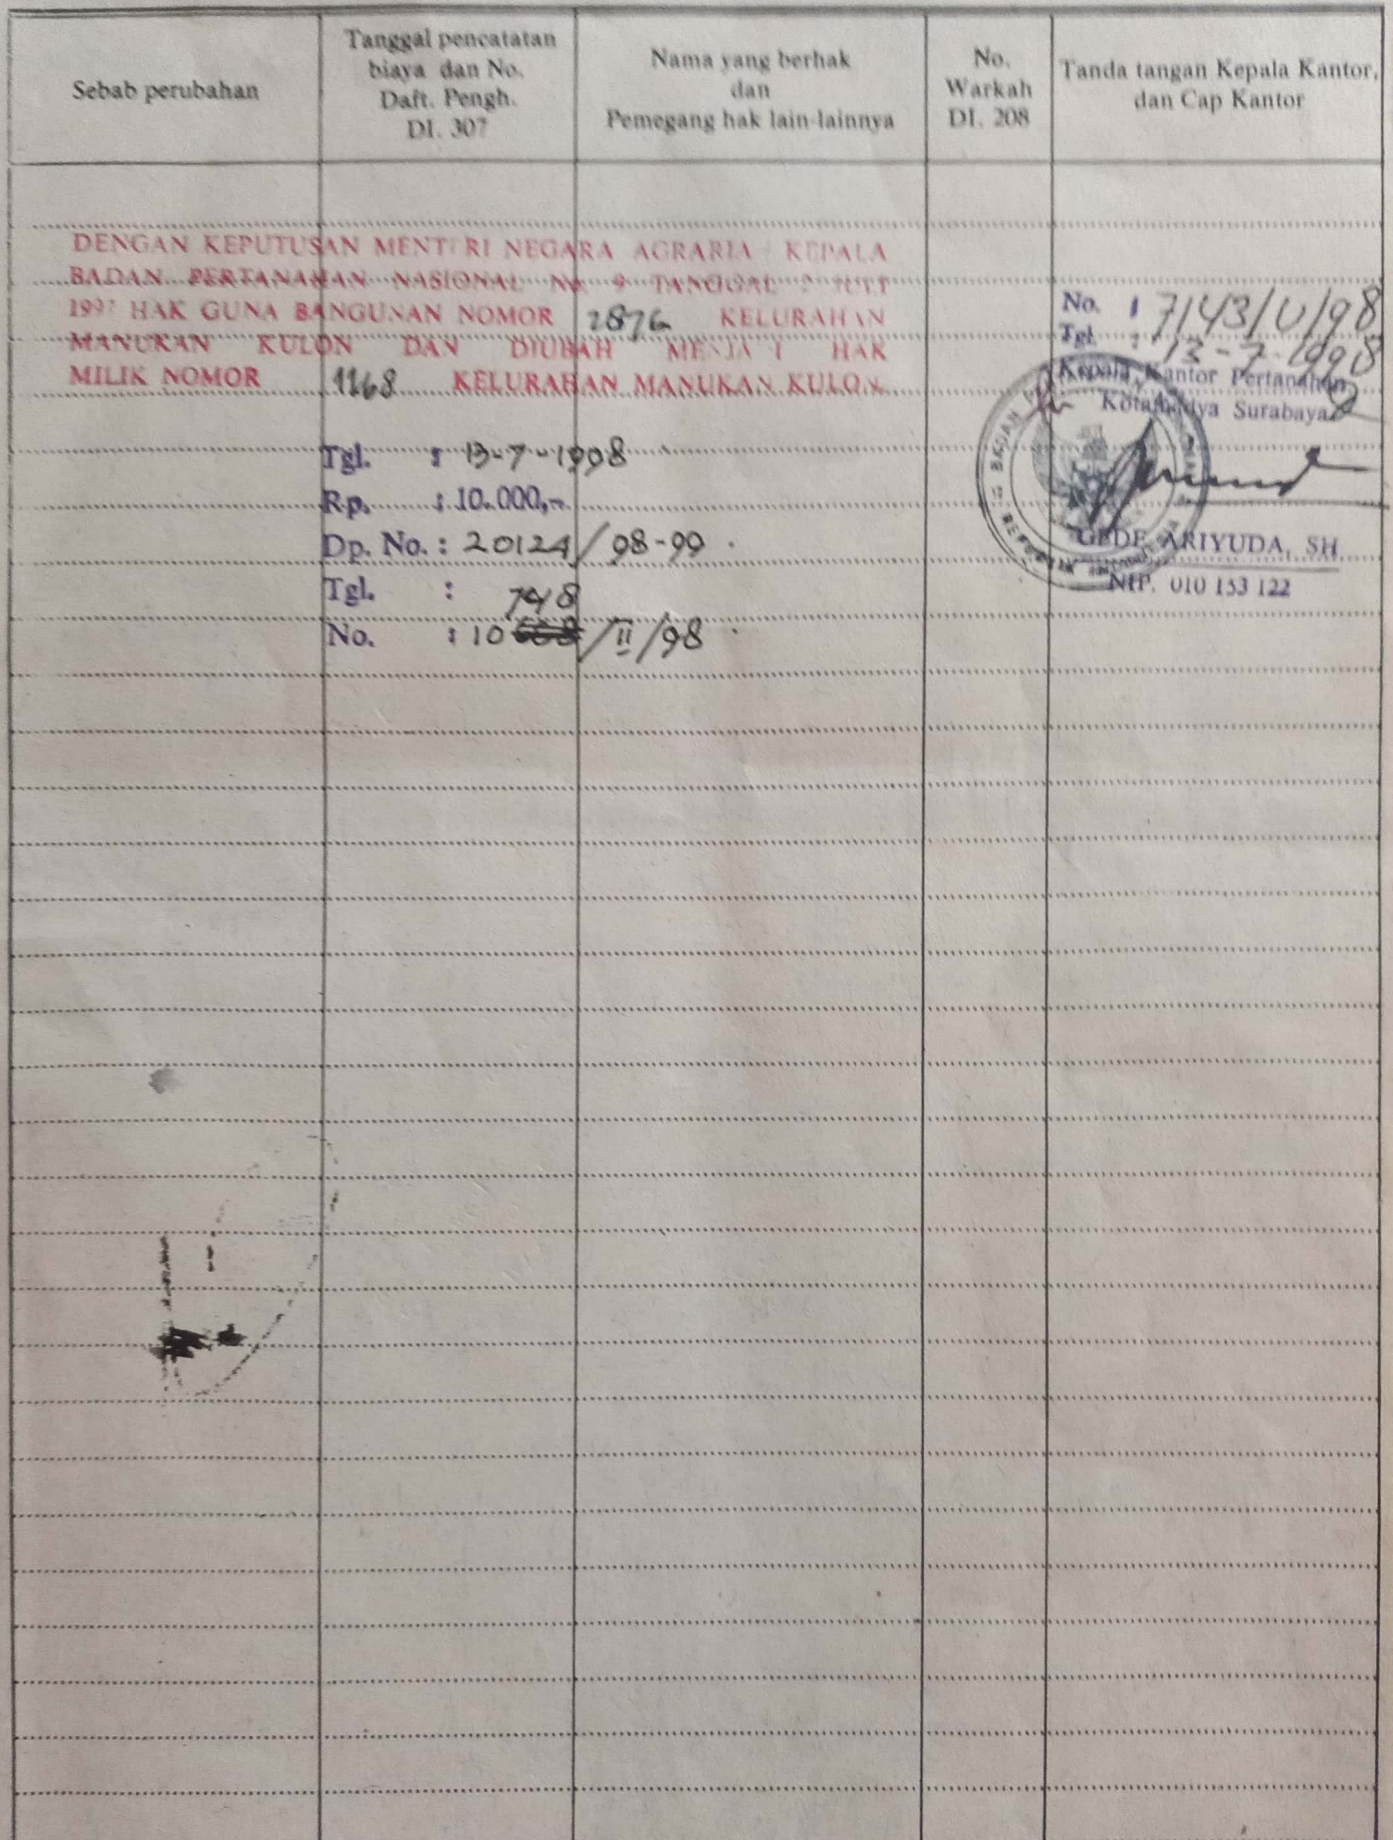 Sebab perubahan
Tanggal pencatatan
biaya dan No.
Daft. Pengh.
DI. 307
Nama yang berhak
dan
Pemegang hak lain-lainnya
No.
Warkah
DI. 208
Tanda tangan Kepala Kantor,
dan Cap Kantor
DENGAN KEPUTUSAN MENTERI NEGARA AGRARIA / KEPALA
BADAN PERTANAHAN NASIONAL No 9 TANGGAL 2 JULI
1997 HAK GUNA BANGUNAN NOMOR 2876 KELURAHAN
MANUKAN KULON DAN DIUBAH MENJA I HAK
MILIK NOMOR 1168 KELURAHAN MANUKAN KULON
No. : 7143/U/98
Tgl. : 13-7-1998
Kepala Kantor Pertanahan
Kotamadya Surabaya
GEDE ARIYUDA, SH
NIP. 010 153 122
Tgl. : 13-7-1998
Rp. : 10.000,-
Dp. No. : 20124/98-99
Tgl. :
748
No. : 10 /II/98